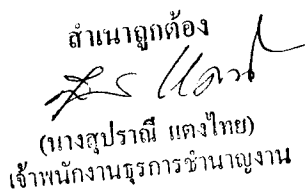 สำเนาถูกต้อง
(นางสุปราณี แตงไทย)
เจ้าพนักงานธุรการชำนาญงาน